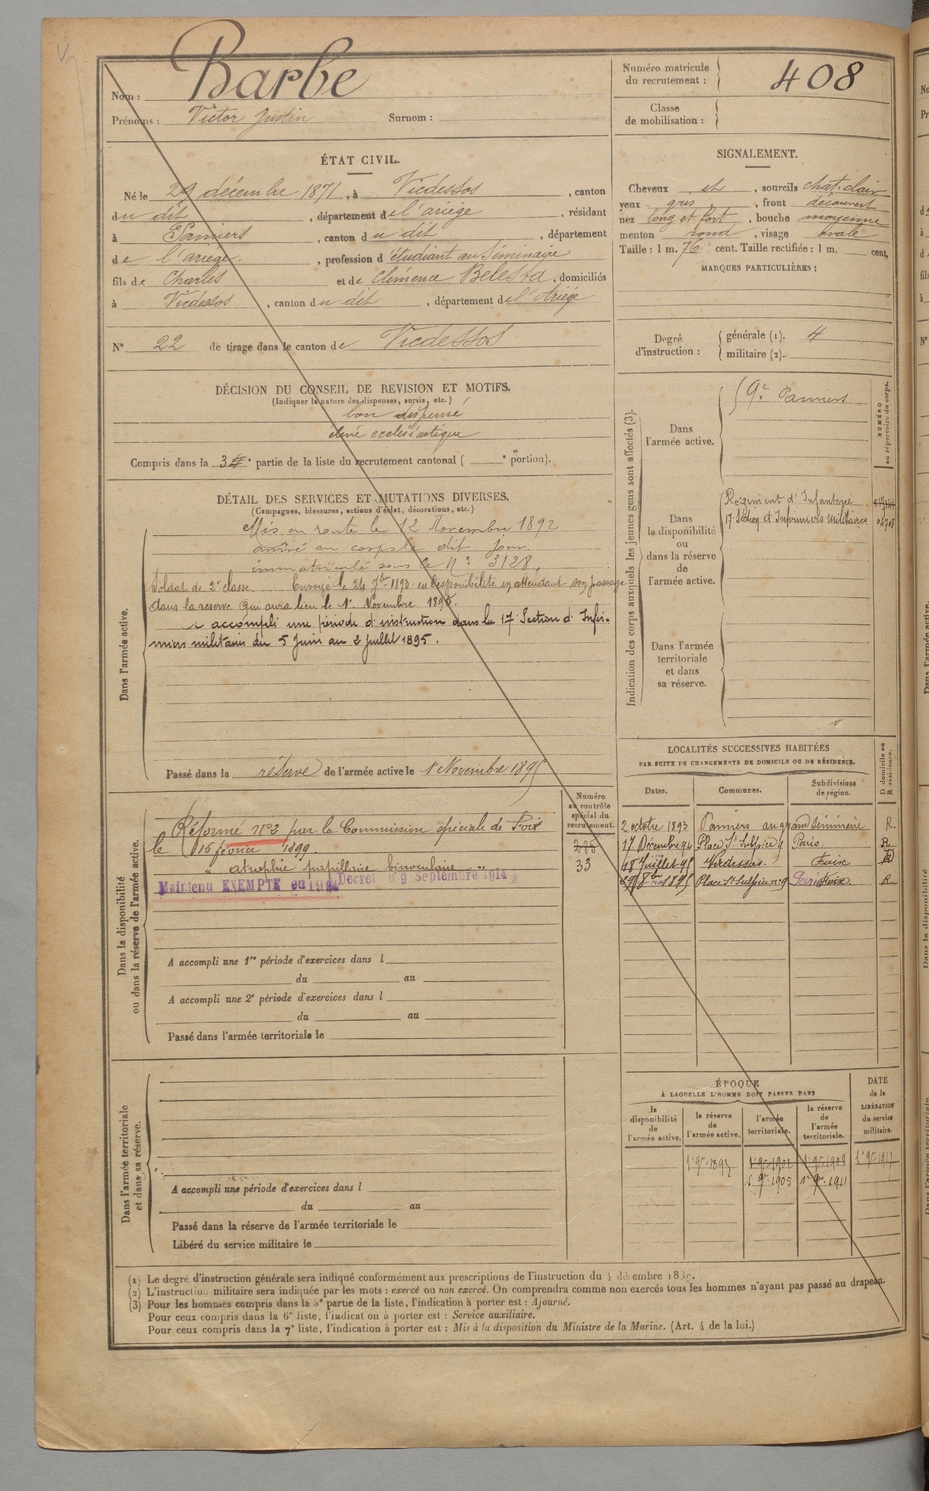 Nom : Barbe
Prénoms : Victor Justin Surnom :
Numéro matricule du recrutement : 408
Classe de mobilisation :
ÉTAT CIVIL.
Né le 29 décembre 1871, à Vicdessos, canton
du dit, département de l'ariège, résidant
à Pamiers, canton du dit, département
de l'ariège, profession d'étudiant au Séminaire
fils de Charles et de Clémence Belesta, domiciliés
à Vicdessos, canton du dit, département de l'Ariège
N° 22 de tirage dans le canton de Vicdessos
SIGNALEMENT.
Cheveux et, sourcils chat. clair
yeux gris, front découvert
nez long et fort, bouche moyenne
menton rond, visage ovale
Taille : 1 m. 76 cent. Taille rectifiée : 1 m. cent.
MARQUES PARTICULIÈRES :
Degré d'instruction : générale (1). 4
militaire (2).
DÉCISION DU CONSEIL DE REVISION ET MOTIFS.
(Indiquer la nature des dispenses, sursis, etc.)
bon dispensé
élève ecclésiastique
Compris dans la 3e partie de la liste du recrutement cantonal ( e portion).
DÉTAIL DES SERVICES ET MUTATIONS DIVERSES.
(Campagnes, blessures, actions d'éclat, décorations, etc.)
Dans l'armée active.
Mis en route le 12 Novembre 1892
arrivé au corps le dit jour
immatriculé sous le N° 3128.
Soldat de 2e classe. Envoyé le 24 7bre 1893 en disponibilité en attendant son passage
dans la reserve qui aura lieu le 1er Novembre 1895.
A accompli une période d'instruction dans la 17e Section d'Infir-
miers militaires du 5 Juin au 2 juillet 1895.
Passé dans la réserve de l'armée active le 1 Novembre 1895
Indication des corps auxquels les jeunes gens sont affectés (3).
NUMÉRO au répertoire du corps.
Dans l'armée active.
9e Pamiers
Dans la disponibilité ou dans la réserve de l'armée active.
Régiment d'Infanterie
17e Section d'Infirmiers militaires
Dans l'armée territoriale et dans sa réserve.
LOCALITÉS SUCCESSIVES HABITÉES
PAR SUITE DE CHANGEMENTS DE DOMICILE OU DE RÉSIDENCE.
Dates. Communes. Subdivisions de région. D domicile ou R résidence.
2 octobre 1893 Pamiers au grand séminaire R.
17 Décembre 94 Place St Sulpice 9 Paris. R.
18 Juillet 95 Vicdessos. Foix R
29 8bre 1895 Place St Sulpice n° 9 Paris R
Dans la disponibilité ou dans la réserve de l'armée active.
Numéro au contrôle spécial du recrutement.
33
Réformé N° 2 par la Commission spéciale de Foix
le 16 février 1899.
atrophie papillaire binoculaire
Maintenu EXEMPTÉ en 1914 Décret du 9 Septembre 1914
A accompli une 1re période d'exercices dans l
du au
A accompli une 2e période d'exercices dans l
du au
Passé dans l'armée territoriale le
Dans l'armée territoriale et dans sa réserve.
A accompli une période d'exercices dans l
du au
Passé dans la réserve de l'armée territoriale le
Libéré du service militaire le
ÉPOQUE
À LAQUELLE L'HOMME DOIT PASSER DANS
la disponibilité de l'armée active. la réserve de l'armée active. l'armée territoriale. la réserve de l'armée territoriale.
DATE de la LIBÉRATION du service militaire.
1er 9bre 1895 1er 9bre 1902 1er 9bre 1908 1er 9bre 1917
1er 9bre 1905 1er 9bre 1911
(1) Le degré d'instruction générale sera indiqué conformément aux prescriptions de l'instruction du 4 décembre 1889.
(2) L'instruction militaire sera indiquée par les mots : exercé ou non exercé. On comprendra comme non exercés tous les hommes n'ayant pas passé au drapeau.
(3) Pour les hommes compris dans la 5e partie de la liste, l'indication à porter est : Ajourné.
Pour ceux compris dans la 6e liste, l'indication à porter est : Service auxiliaire.
Pour ceux compris dans la 7e liste, l'indication à porter est : Mis à la disposition du Ministre de la Marine. (Art. 4 de la loi.)